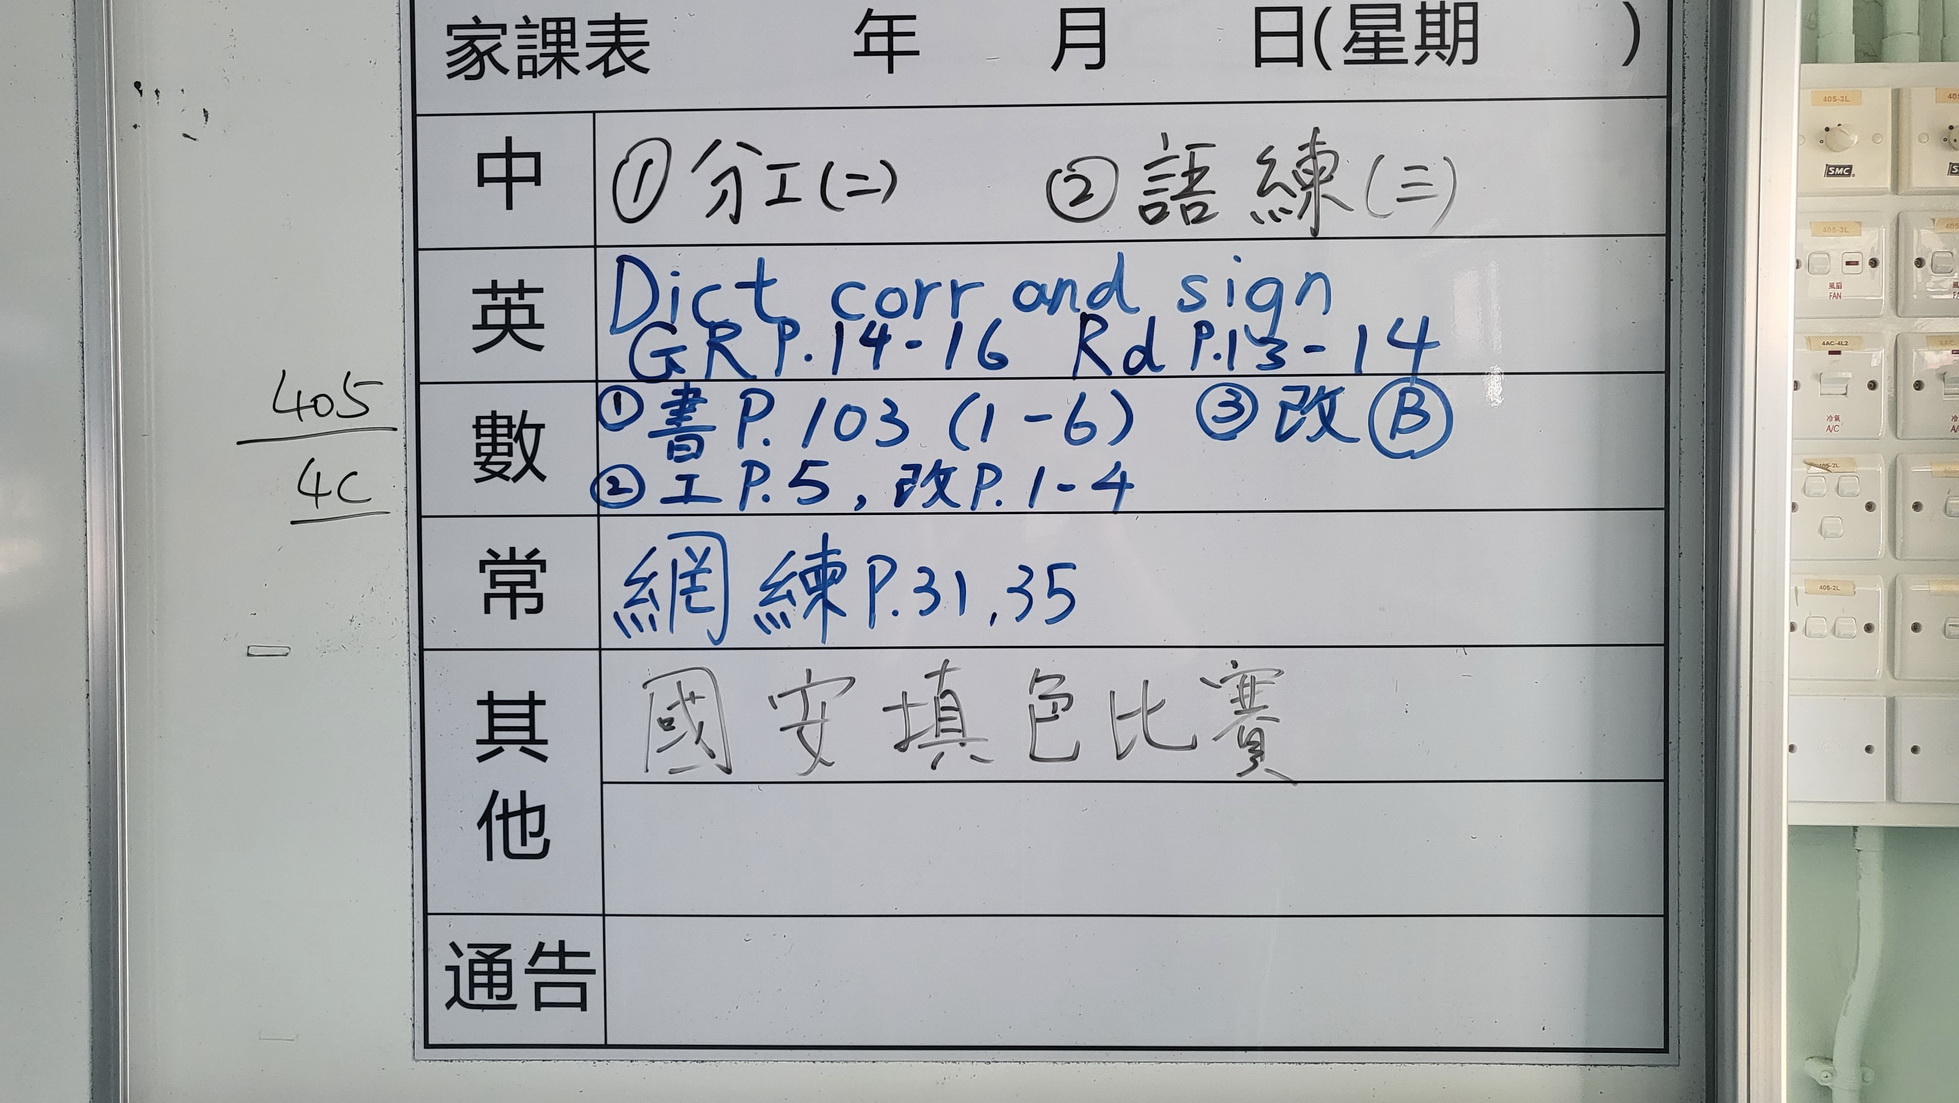 家課表 年 月 日(星期 )
中 ①分工(二) ②語練(三)
英 Dict corr and sign
GR P.14-16 Rd P.13-14
數 ①書P.103 (1-6) ③改Ⓑ
②工P.5, 改P.1-4
常 網練P.31,35
其他 國安填色比賽
通告
405
4C
405-3L
SMC
405-3L
風扇
FAN
4AC-4L2
冷氣
A/C
405-2L
405-2L